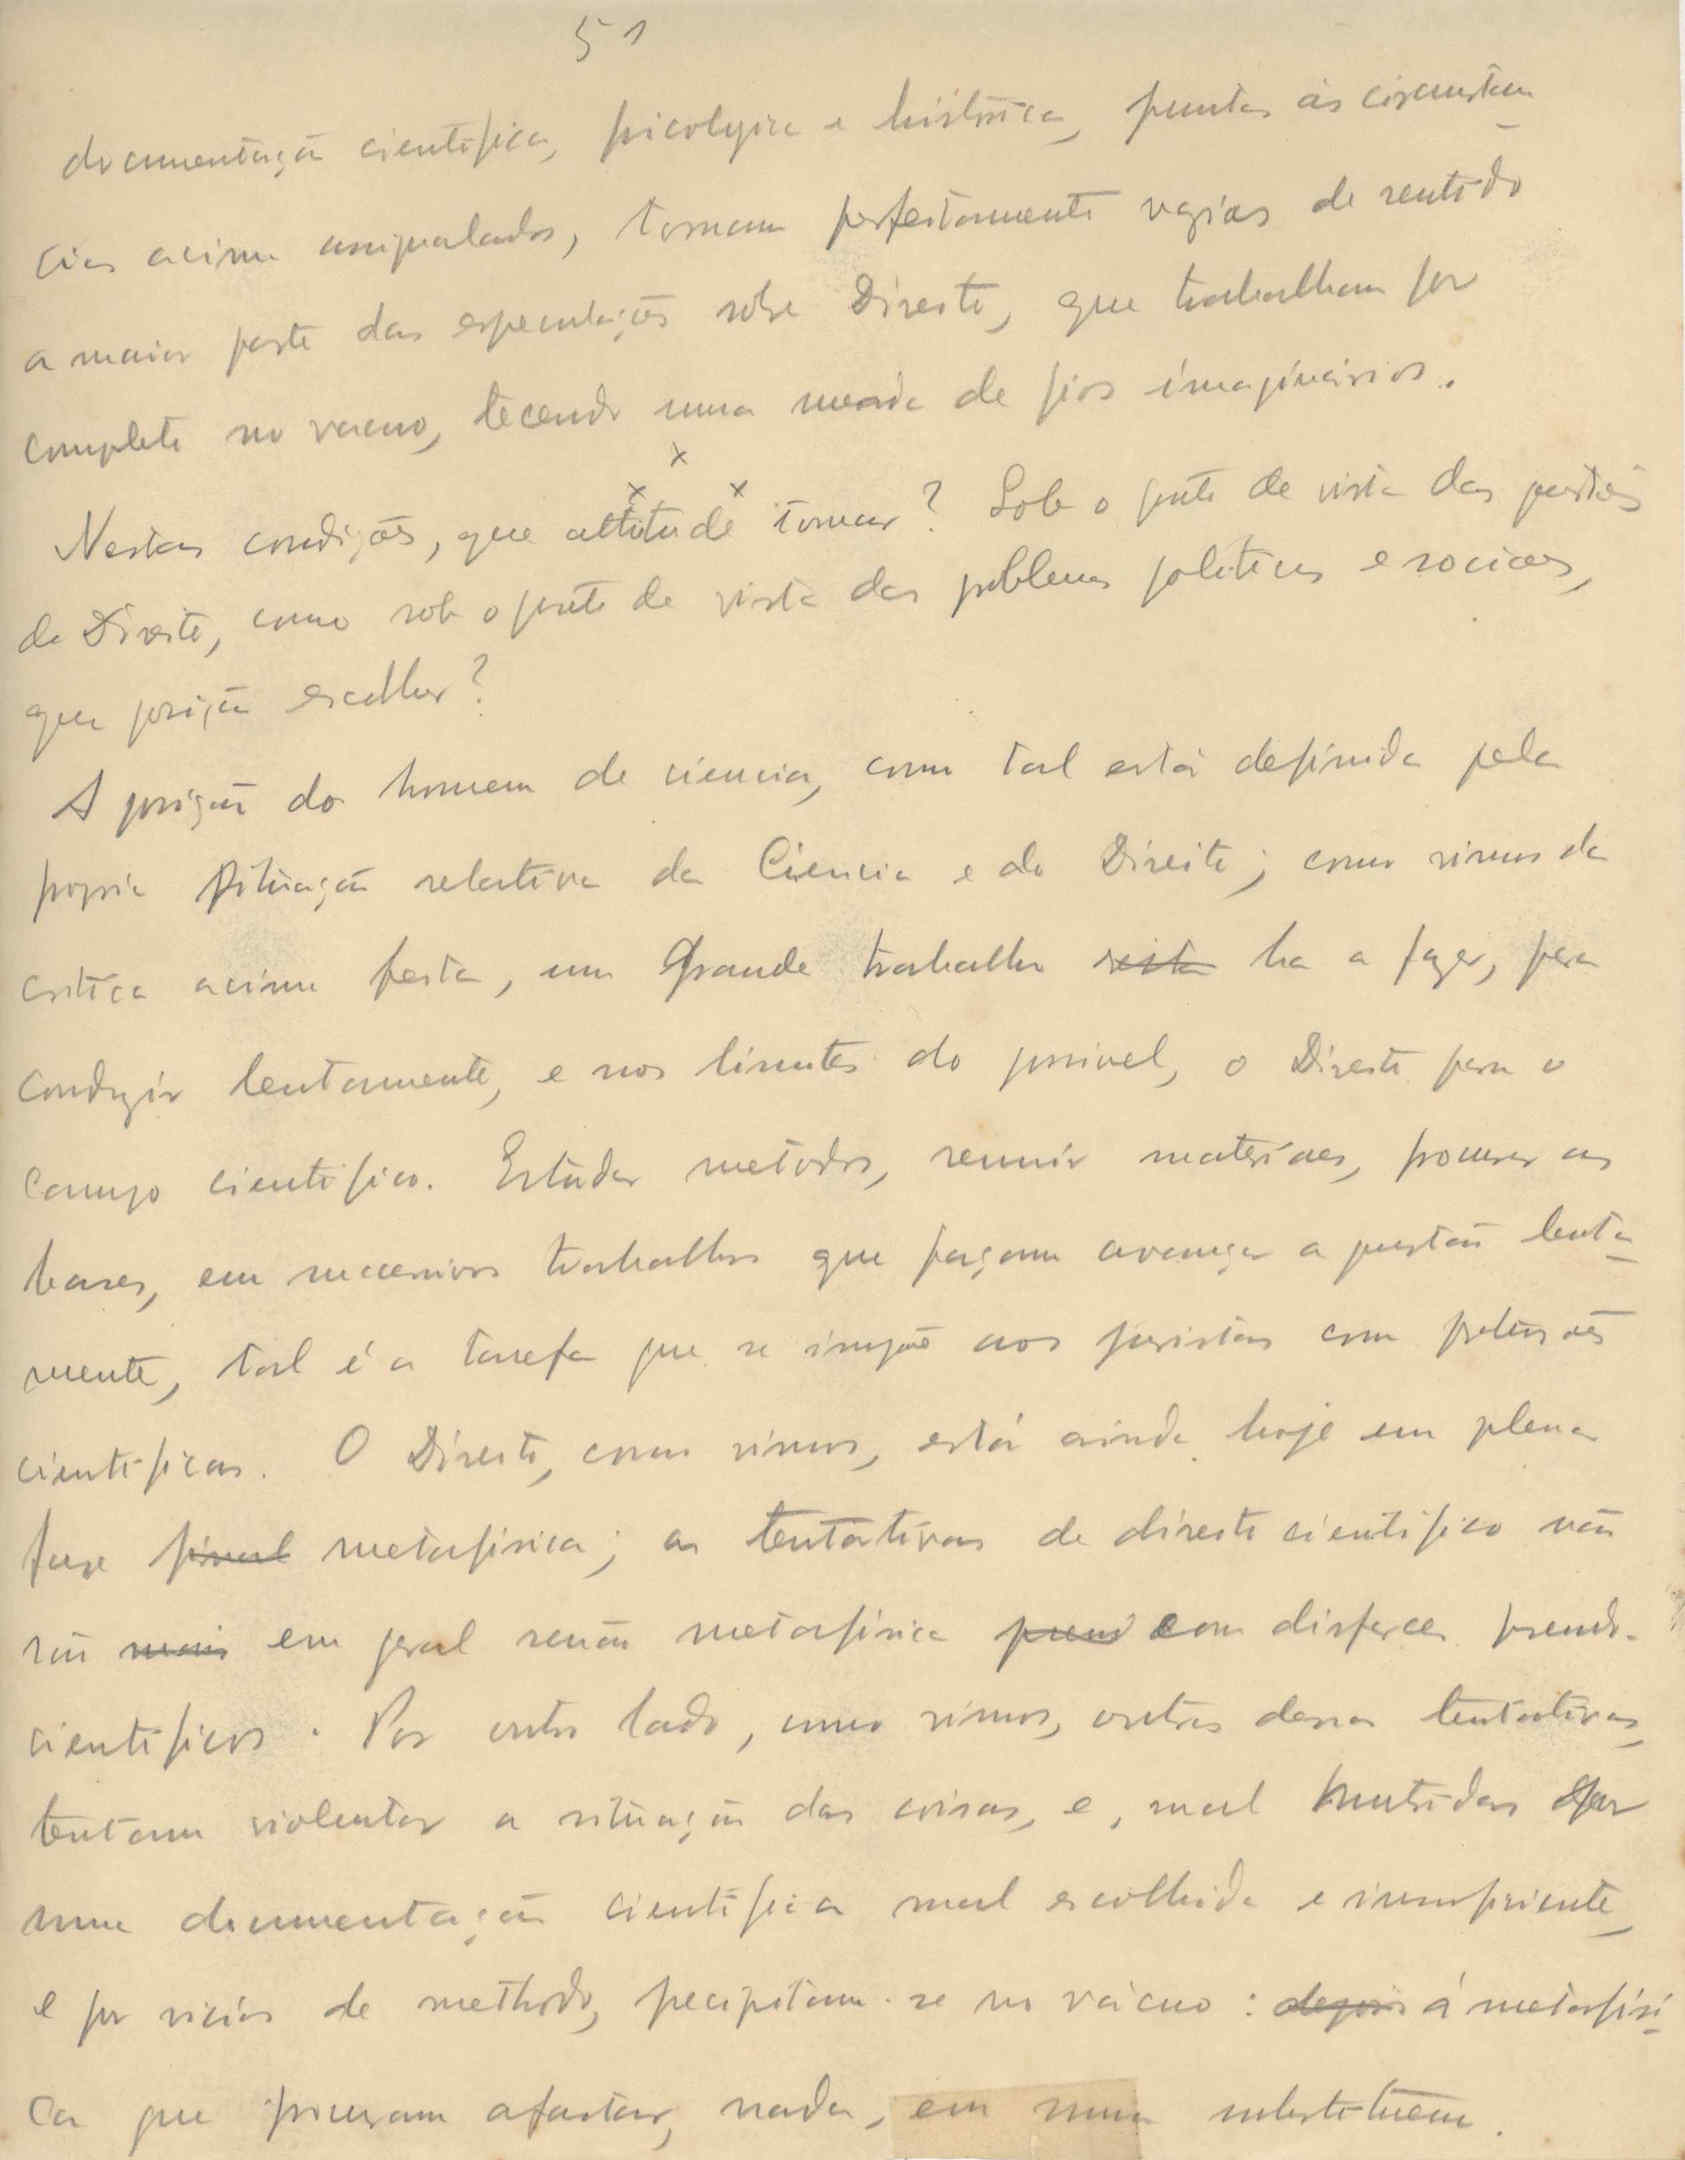 51
documentação cientifica, psicologica e histórica, juntas ás circunstan-
cias acima assignaladas, tornam perfeitamente vazias de sentido
a maior parte das especulações sobre Direito, que trabalham por
completo no vacuo, tecendo uma meada de fios imaginários.
x
x x
Nestas condições, que attitude tomar? Sob o ponto de vista das questões
de Direito, como sob o ponto de vista dos problemas politicos e sociaes,
que posição escolher?
A posição do homem de sciencia, como tal está definida pela
propria situação relativa da Ciencia e do Direito; como vimos da
critica acima feita, um grande trabalho resta ha a fazer, para
conduzir lentamente, e nos limites do possivel, o Direito para o
campo cientifico. Estudar metodos, reunir materiaes, procurar as
bases, em successivos trabalhos que façam avançar a questão lenta-
mente, tal é a tarefa que se impõe aos juristas com pretensões
cientificas. O Direito, como vimos, está ainda hoje em plena
fase final metafisica; as tentativas de direito cientifico não
são mais em geral senão metafisica com disfarces pseudo-
cientificos. Por outro lado, como vimos, outras dessas tentativas,
tentam violentar a situação das coisas, e, mal nutridas por
uma documentação cientifica mal escolhida e insuficiente,
e por vicios de methodo, precipitam-se no vácuo: depois á metafisi-
ca que procuram afastar, nada, em suma substituem.